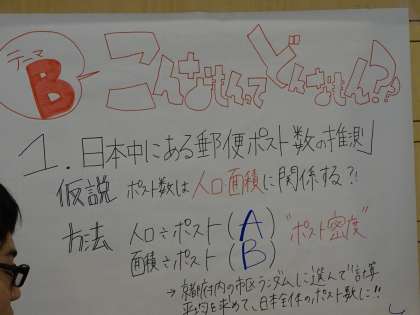 テーマ
B
こんなもんって どんなもん!??
1.日本中にある郵便ポスト数の推測
仮説 ポスト数は人口面積に関係する?!
方法 人口÷ポスト(A) "ポスト密度"
面積÷ポスト(B)
→京都府内の市区ランダムに選んで計算
平均を求めて、日本全体のポスト数に!!